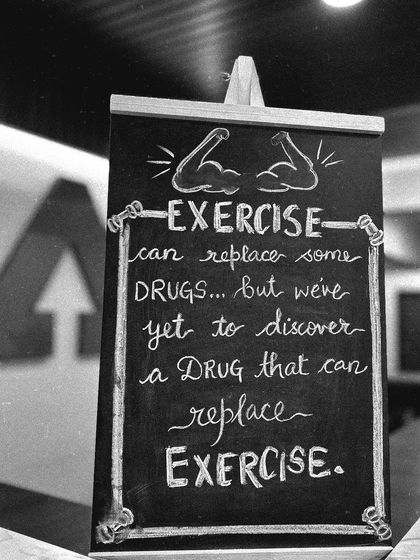 EXERCISE
can replace some
DRUGS... but we've
yet to discover
a DRUG that can
replace
EXERCISE.